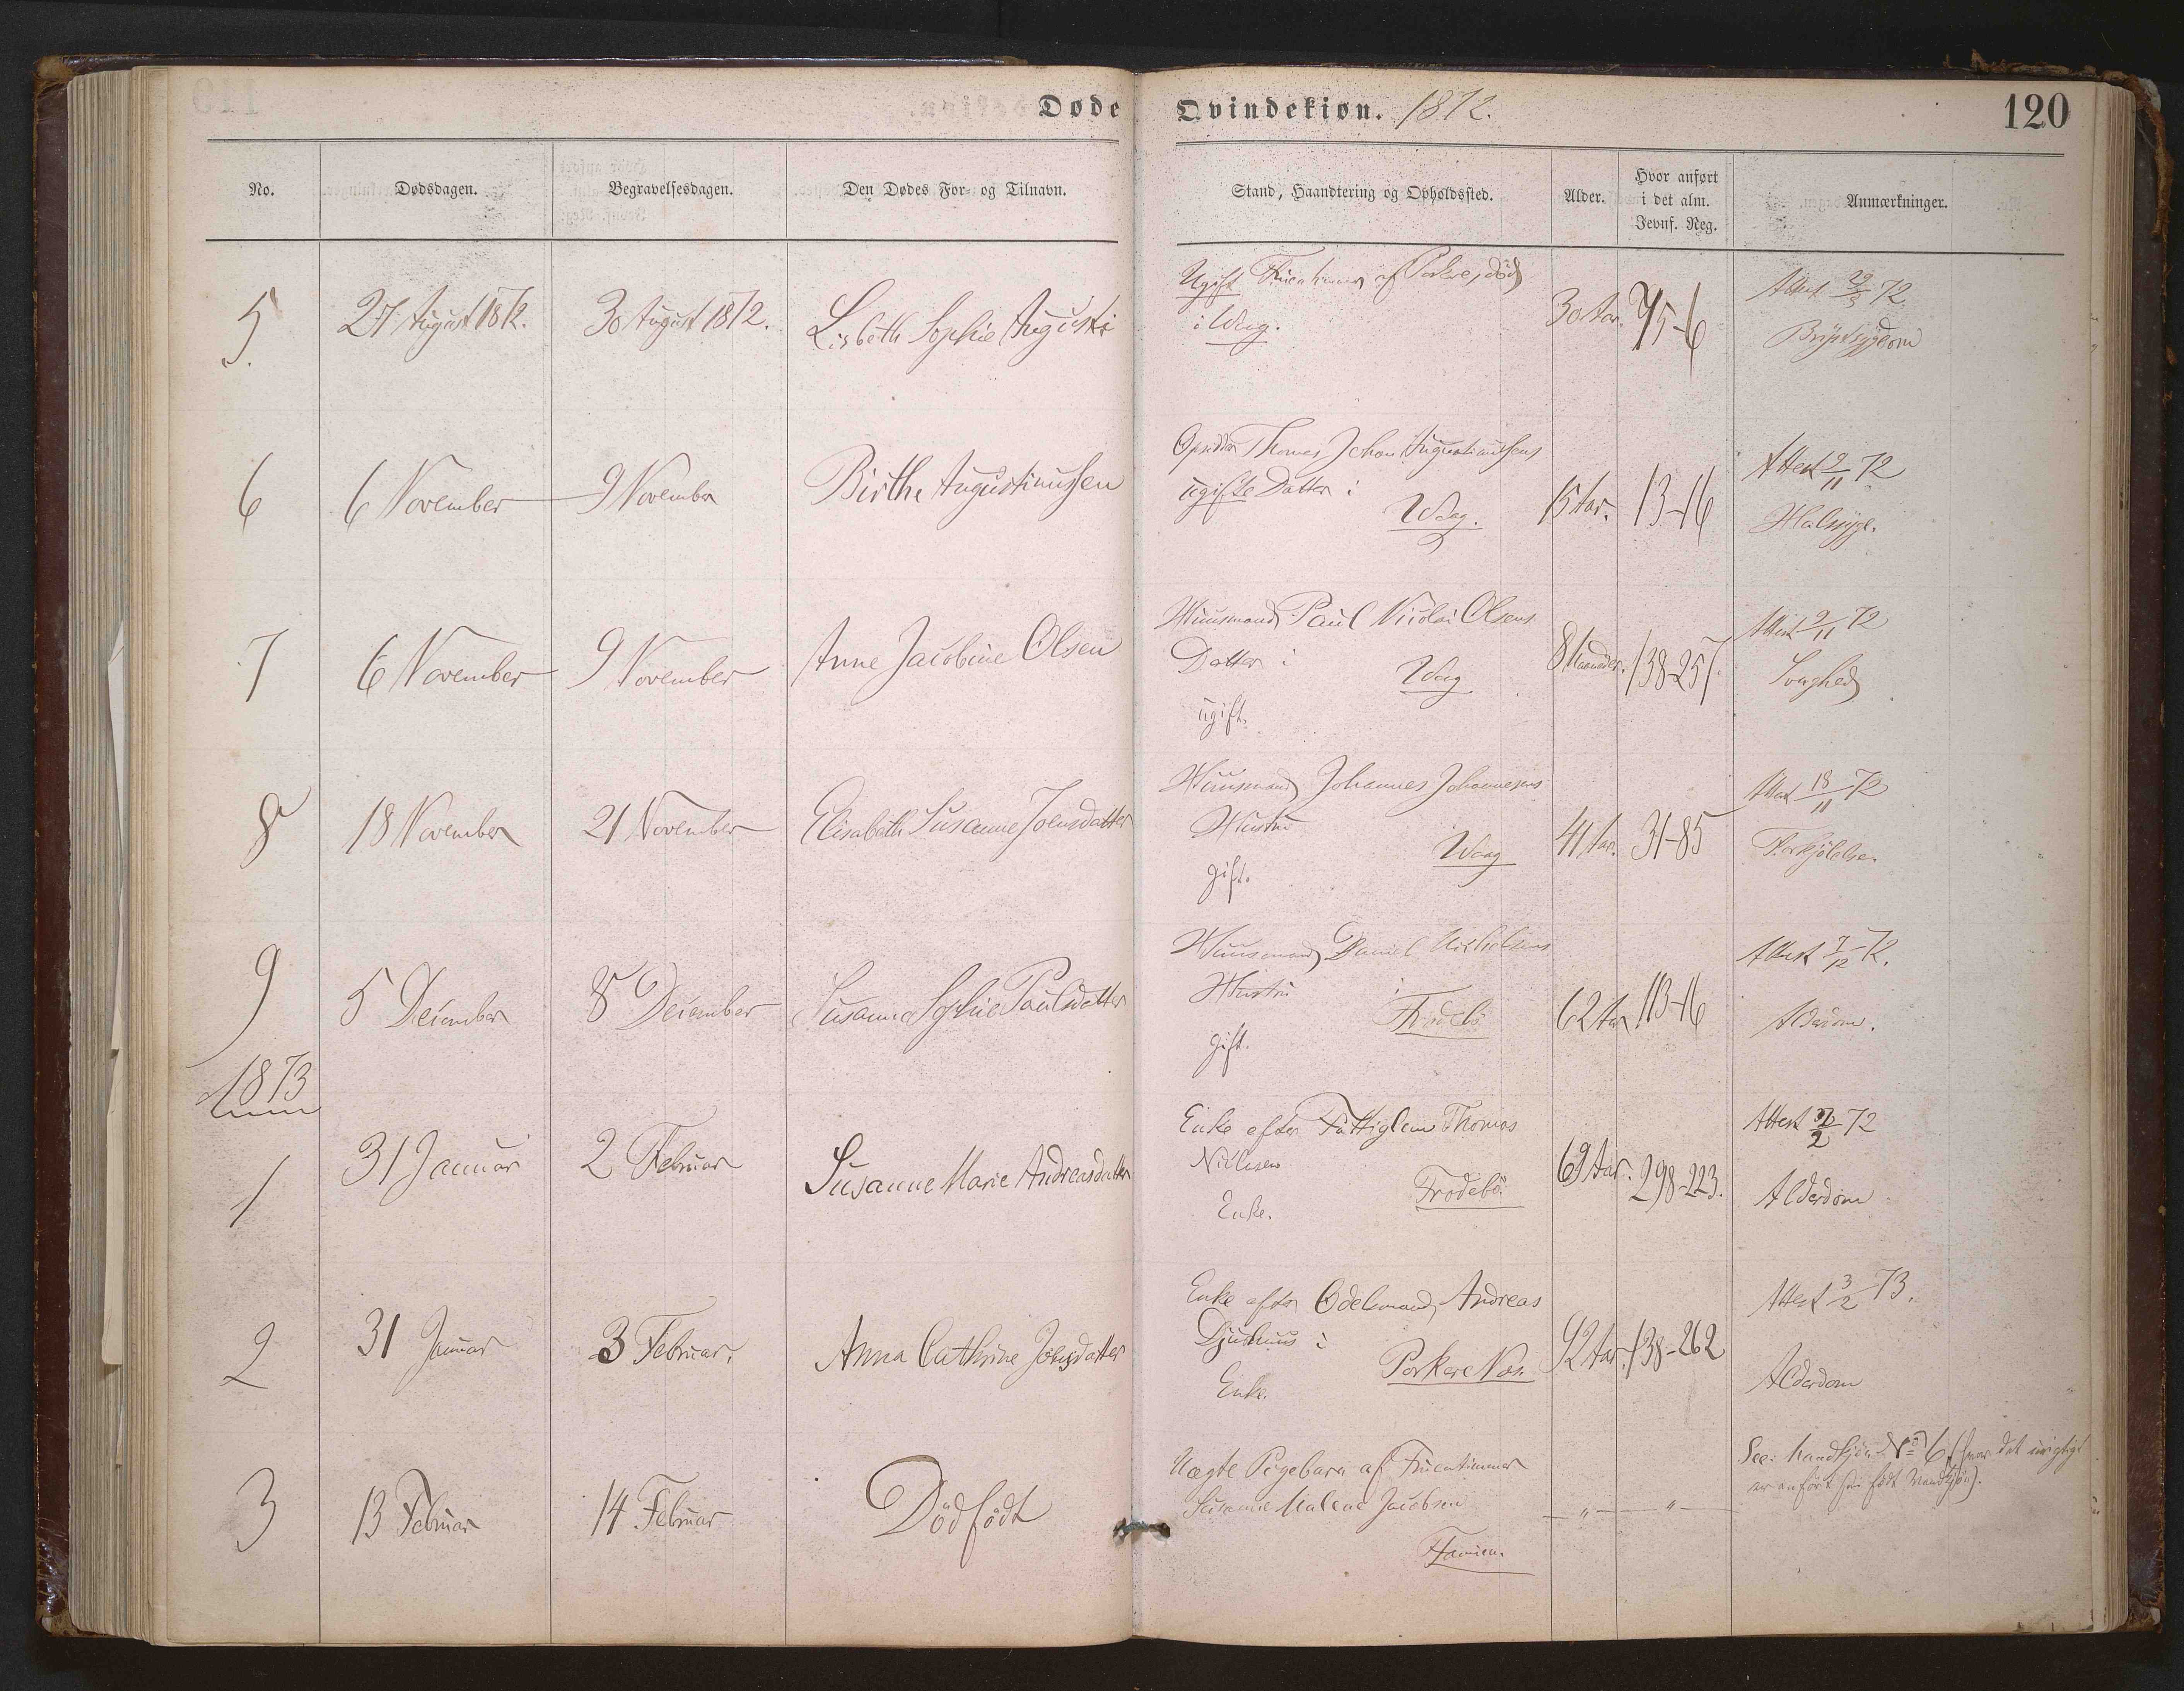 Døde Qvindekiøn. 1872.
120
No. Dødsdagen. Begravelsesdagen. Den Dødes For- og Tilnavn. Stand, Haandtering og Opholdssted. Alder. Hvor anført i det alm. Jevnf. Reg. Anmærkninger.
5. 27 August 1872. 30 August 1872. Lisbeth Sophie Augusti
Ugift Fruentimmer af Porkere, død
i Waag.
30 Aar. 75-6
Attest 29/8 72
Brystsygdom
6 6 November 9 November Birthe Augustinussen
Opsidder Thomas Johan Augustinussens
ugifte Datter i
Waag.
15 Aar. 13-16
Attest 9/11 72
Halssyge.
7 6 November 9 November Anne Jacobine Olsen
Huusmand Paul Nicolai Olsens
Datter i
Waag
ugift.
8 Maaneder. 138-257
Attest 9/11 72
Svaghed
8 18 November 21 November Elisabeth Susanne Joensdatter
Huusmand Johannes Johannesens
Hustru
Waag
gift.
41 Aar. 31-85
Attest 18/11 72
Forkjölelse.
9 5 December 8 December Susanne Sophie Paulsdatter
Huusmand Daniel
Hustru i
Frodebö
gift.
62 Aar 113-16
Attest 7/12 72.
Alderdom.
1873
1 31 Januar 2 Februar Susanne Marie Andreasdatter
Enke efter Fattiglem Thomas
Nielsen
Frodebö.
Enke.
69 Aar. 298-223.
Attest 2 72
Alderdom
2 31 Januar 3 Februar. Anna Cathrine Joensdatter
Enke efter Odelsmand Andreas
Djurhuus i
Porkere Næs.
Enke.
92 Aar. 138-262
Attest 3/2 73.
Alderdom
3 13 Februar 14 Februar Dödfödt
Uægte Pigebarn af Fruentimmer
Susanne Malene Jacobsen
Famien.
— " — — " —
See: Mandkjön No 6 (hvor det urigtigt
er anført som født Mandkjön).